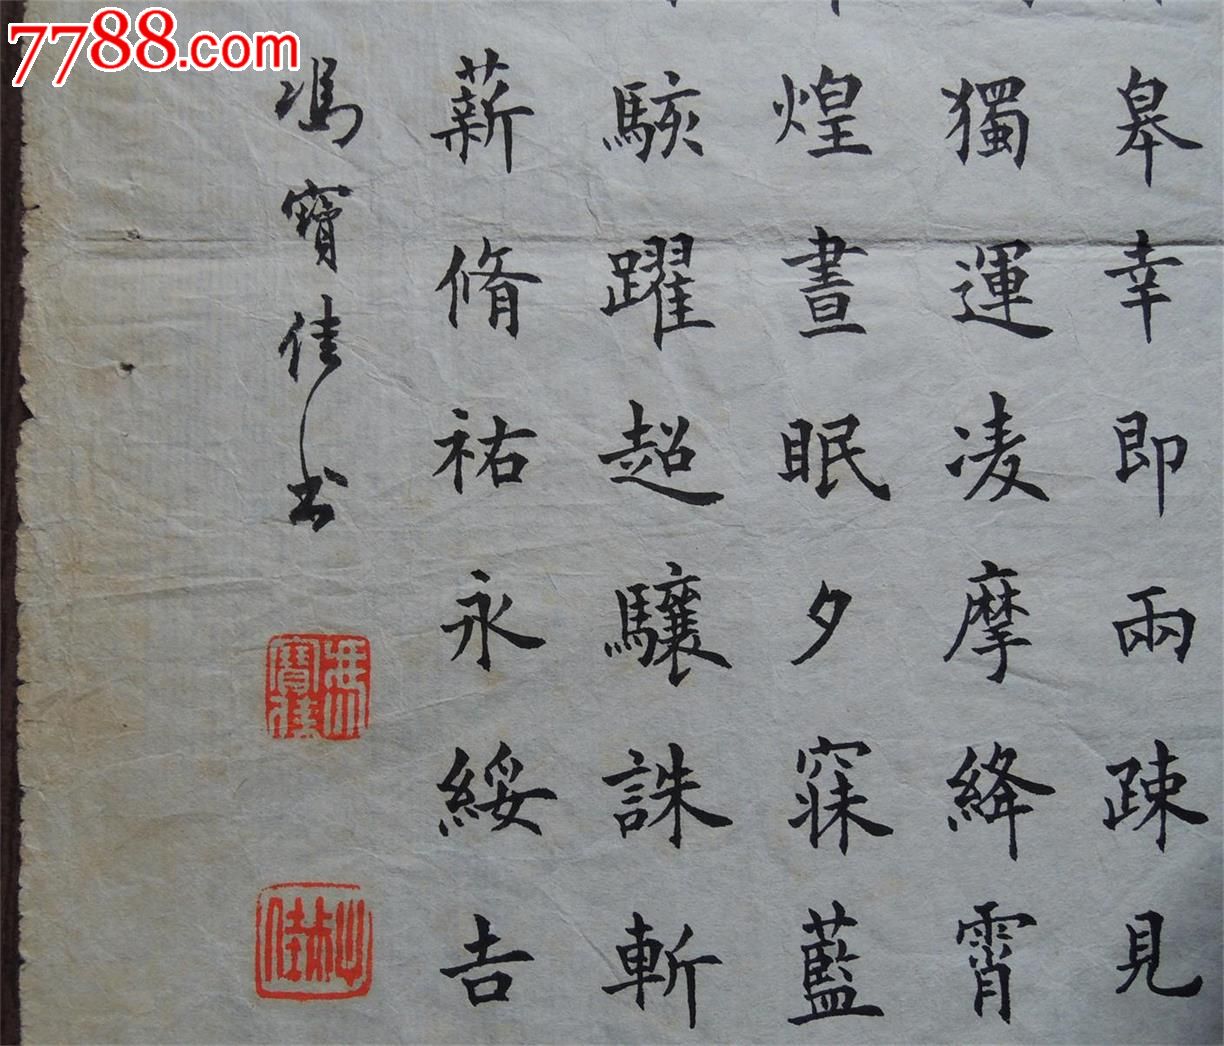 7788.com
皋幸即兩疎見
獨運凌摩絳霄
煌晝眠夕寐藍
駭躍超驤誅斬
薪脩祜永綏吉
馮寶佳书
馮寶佳